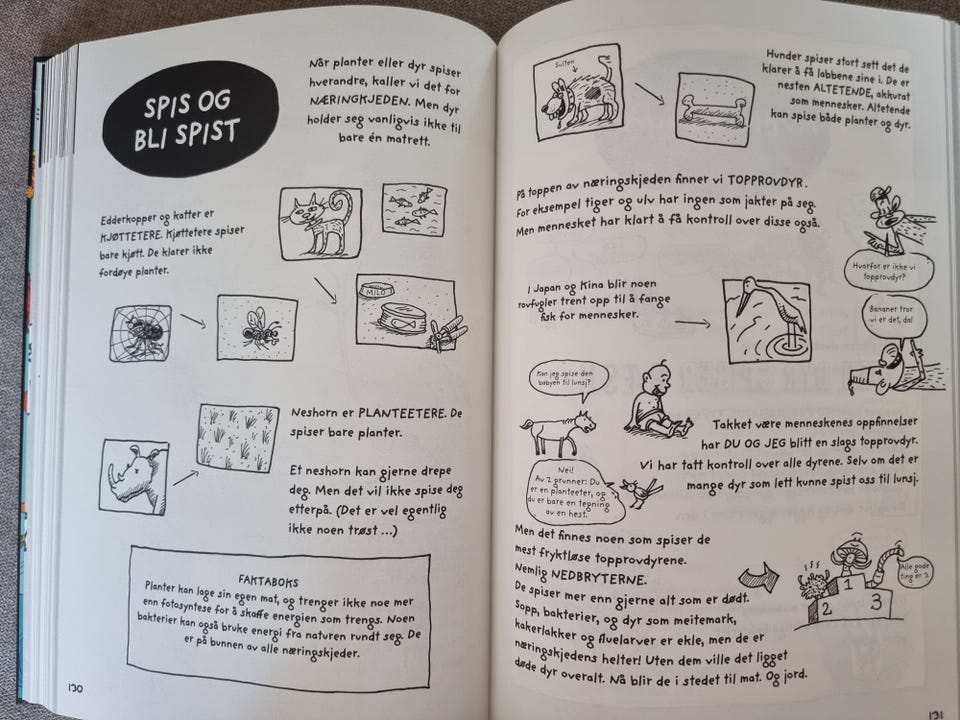 SPIS OG
BLI SPIST
Når planter eller dyr spiser
hverandre, kaller vi det for
NÆRINGKJEDEN. Men dyr
holder seg vanligvis ikke til
bare én matrett.
Edderkopper og katter er
KJØTTETERE. Kjøttetere spiser
bare kjøtt. De klarer ikke
fordøye planter.
MILO
Neshorn er PLANTEETERE. De
spiser bare planter.
Et neshorn kan gjerne drepe
deg. Men det vil ikke spise deg
etterpå. (Det er vel egentlig
ikke noen trøst ...)
FAKTABOKS
Planter kan lage sin egen mat, og trenger ikke noe mer
enn fotosyntese for å skaffe energien som trengs. Noen
bakterier kan også bruke energi fra naturen rundt seg. De
er på bunnen av alle næringskjeder.
130
Sulten
Hunder spiser stort sett det de
klarer å få labbene sine i. De er
nesten ALTETENDE, akkurat
som mennesker. Altetende
kan spise både planter og dyr.
På toppen av næringskjeden finner vi TOPPROVDYR.
For eksempel tiger og ulv har ingen som jakter på seg.
Men mennesket har klart å få kontroll over disse også.
Hvorfor er ikke vi
topprovdyr?
I Japan og Kina blir noen
rovfugler trent opp til å fange
fisk for mennesker.
Bananer tror
vi er det, da!
Kan jeg spise den
babyen til lunsj?
Takket være menneskenes oppfinnelser
har DU OG JEG blitt en slags topprovdyr.
Vi har tatt kontroll over alle dyrene. Selv om det er
mange dyr som lett kunne spist oss til lunsj.
Nei!
Av 2 grunner: Du
er en planteeter, og
du er bare en tegning
av en hest.
Men det finnes noen som spiser de
mest fryktløse topprovdyrene.
Nemlig NEDBRYTERNE.
De spiser mer enn gjerne alt som er dødt.
Sopp, bakterier, og dyr som meitemark,
kakerlakker og fluelarver er ekle, men de er
næringskjedens helter! Uten dem ville det ligget
døde dyr overalt. Nå blir de i stedet til mat. Og jord.
Alle gode
ting er 3.
1
2
3
131